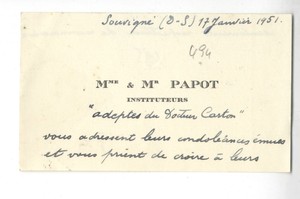 Souvigné (D-S) 17 Janvier 1951.
494
MME & MR PAPOT
INSTITUTEURS
"adeptes du Docteur Carton"
vous adressent leurs condoléances émues
et vous prient de croire à leurs